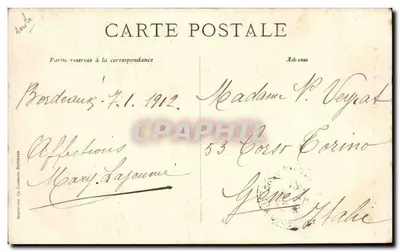 CARTE POSTALE
Partie réservée à la correspondance
Adresse
Bordeaux 7.1.1912
Affections
Mary Lajeunie
Madame V. Veyrat
53 Corso Torino
Gênes
Italie
CARTE POSTALE